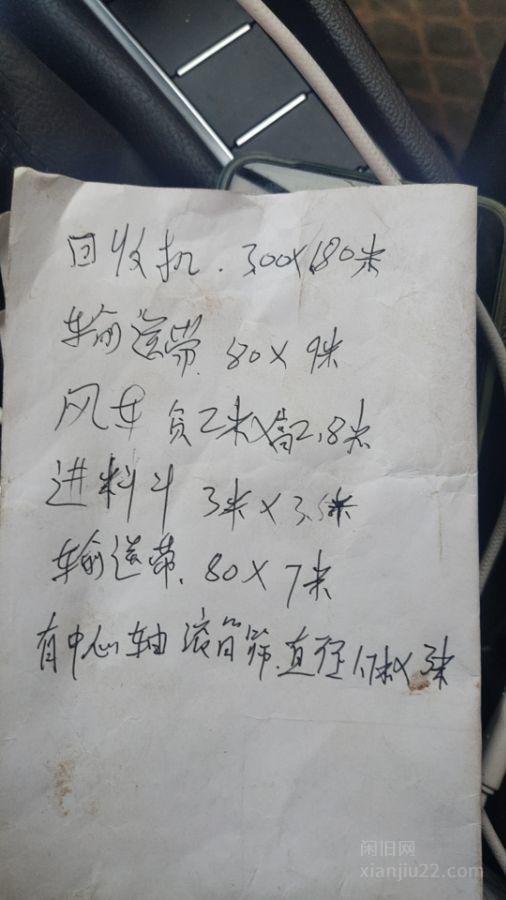 回收机. 300X180米
输送带. 80X 9米
风车 2米X高2.8米
进料斗 3米X3.5米
输送带. 80X 7米
有中心轴 滚筒筛.直径1.7米X 3米
闲旧网
xianjiu22.com